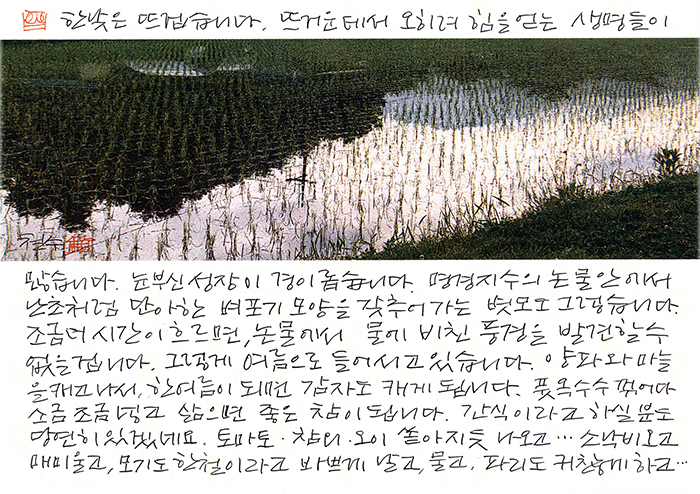 한낮은 뜨겁습니다. 뜨거운데서 오히려 힘을 얻는 생명들이
많습니다. 눈부신 성장이 경이롭습니다. 명경지수의 논물안에서
난초처럼 단아한 벼포기 모양을 갖추어가는 볏모도 그렇습니다.
조금더 시간이 흐르면, 논물에서 물에 비친 풍경을 발견할 수
없을겁니다. 그렇게 여름으로 들어서고 있습니다. 양파와 마늘
을 캐고나서, 한여름이 되면 감자도 캐게 됩니다. 풋옥수수 꺾어다
소금 조금 넣고 삶으면 좋은 참이 됩니다. 간식이라고 하실 분도
당연히 있겠네요. 토마토·참외·오이 쏟아지듯 나오고… 소낙비 오고
매미울고, 모기도 한철이라고 바쁘게 날고, 물고. 파리도 귀찮게 하고…